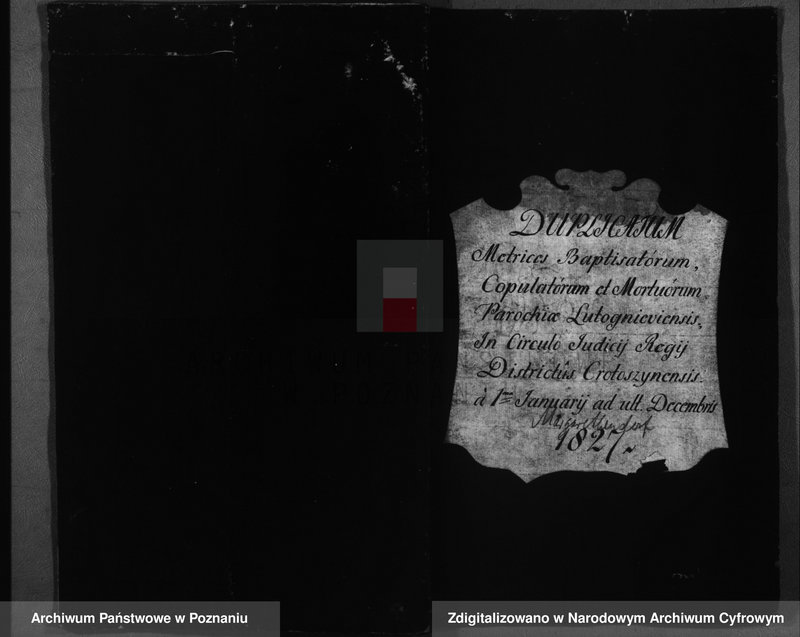 DUPLICATUM
Metrices Baptisatórum,
Copulatórum et Mortuórum
Parochiæ Lutognieviensis,
In Circulo Iudicij Regij
Districtûs Crotoszynensis.
à 1ma Ianuarij ad ult. Decembris
1827.
ARCHIWUM PA
W POZNA
Archiwum Państwowe w Poznaniu
Zdigitalizowano w Narodowym Archiwum Cyfrowym